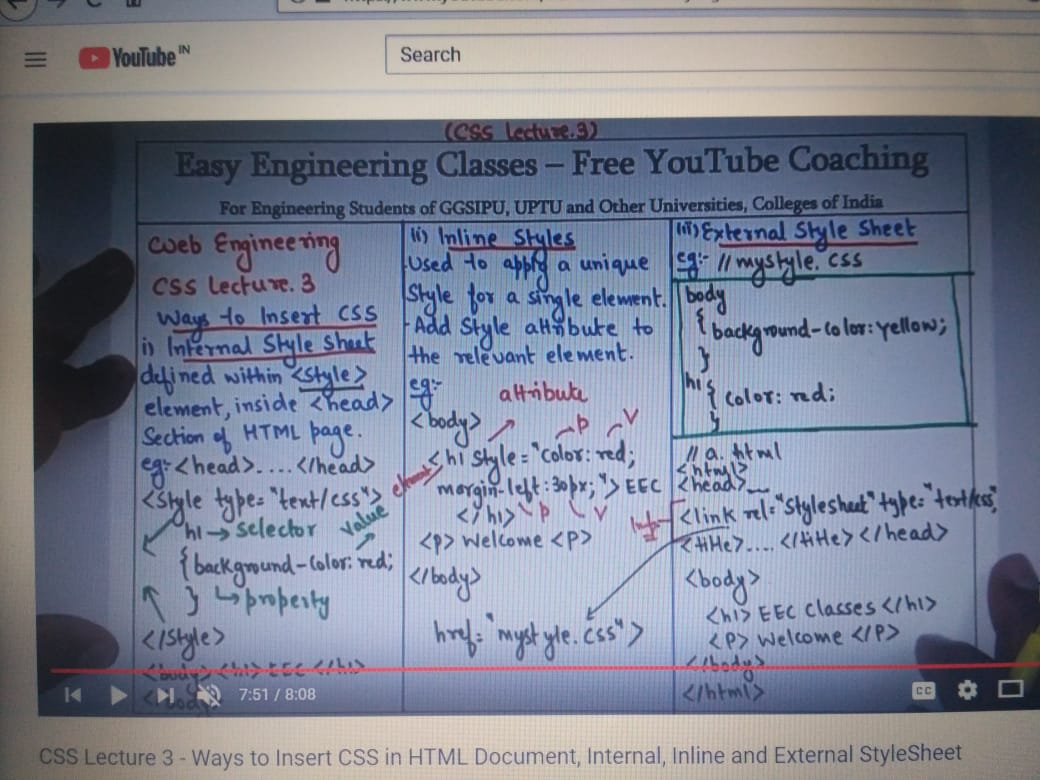 YouTube IN
Search
(CSS Lecture.3)
Easy Engineering Classes – Free YouTube Coaching
For Engineering Students of GGSIPU, UPTU and Other Universities, Colleges of India
Web Engineering
CSS Lecture. 3
Ways to Insert CSS
i) Internal Style Sheet
defined within <style>
element, inside <head>
Section of HTML page.
eg:- <head>.... </head>
<style type="text/css">
h1 → selector value
{background-color: red;
} property
</style>
<body> <h1> EEC </h1>
</body>
(ii) Inline Styles
Used to apply a unique
Style for a single element.
- Add Style attribute to
the relevant element.
eg:-
attribute
<body> P V
<h1 style="color: red;
element margin-left: 30px;"> EEC
</h1> P V
<p> Welcome <p>
</body>
href="mystyle.css">
(iii) External Style Sheet
eg:- // mystyle. css
body
{ background-color: yellow;
}
h1 { color: red;
}
// a. html
<html>
<head>
<link rel="Stylesheet" type="text/css"
<title>.... </title> </head>
<body>
<h1> EEC Classes </h1>
<P> Welcome </P>
</body>
</html>
7:51 / 8:08
CC
CSS Lecture 3 - Ways to Insert CSS in HTML Document, Internal, Inline and External StyleSheet